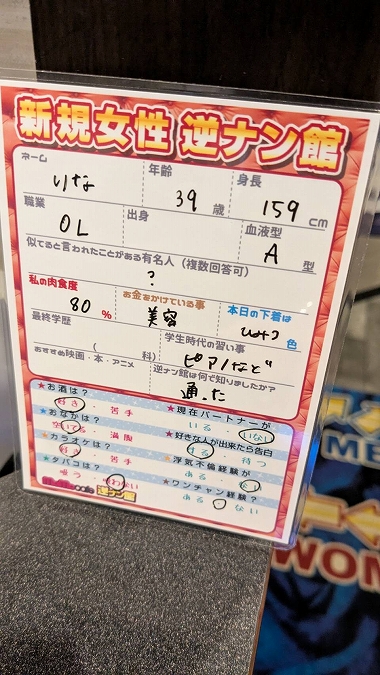 新規女性 逆ナン館
ネーム りな
年齢 39 歳
身長 159 cm
職業 OL
出身
血液型 A 型
似てると言われたことがある有名人（複数回答可）
？
私の肉食度 80 %
お金をかけている事 美容
本日の下着は ひみつ 色
最終学歴
( 科)
学生時代の習い事 ピアノなど
おすすめ映画・本・アニメ
逆ナン館は何で知りましたか？
通った
★お酒は？
好き ・ 苦手
★おなかは？
空いてる ・ 満腹
★カラオケは？
好き ・ 苦手
★タバコは？
吸う ・ 吸わない
★現在パートナーが
いる ・ いない
★好きな人が出来たら告白
する ・ 待つ
★浮気不倫経験が
ある ・ ない
★ワンチャン経験？
ある ・ ない
逆ナン館
ME
WOM